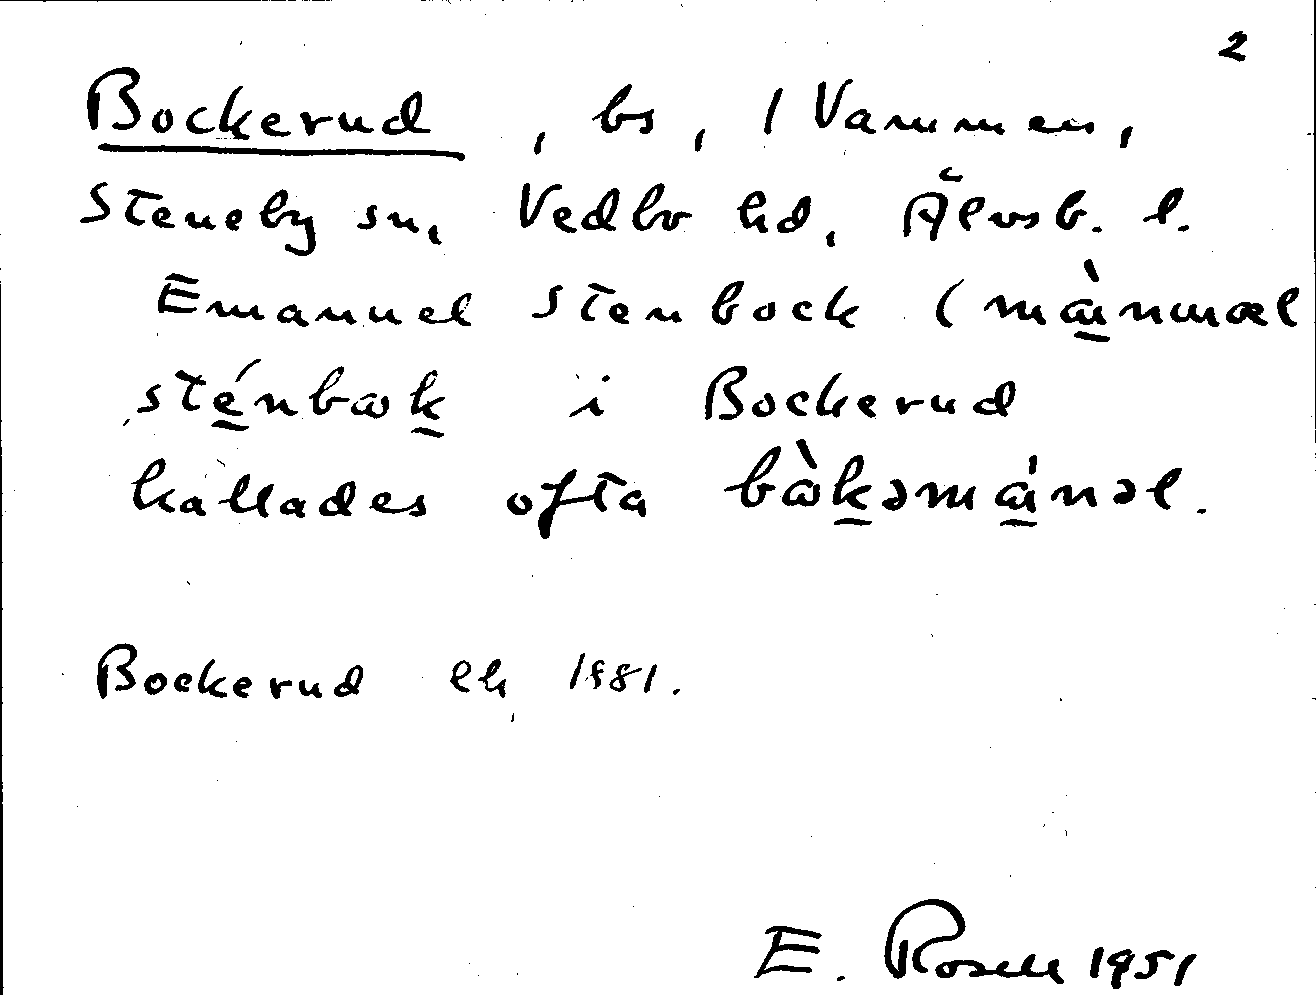 2
Bockerud, bs, / Vammen,
Steneby sn, Vedbo hd, Älvsb. l.
Emanuel Stenbock (mànnuæl
sténbɷk i Bockerud
kallades ofta bɷ̀kəmánəl.
Bockerud ek 1881.
E. Rosell 1951